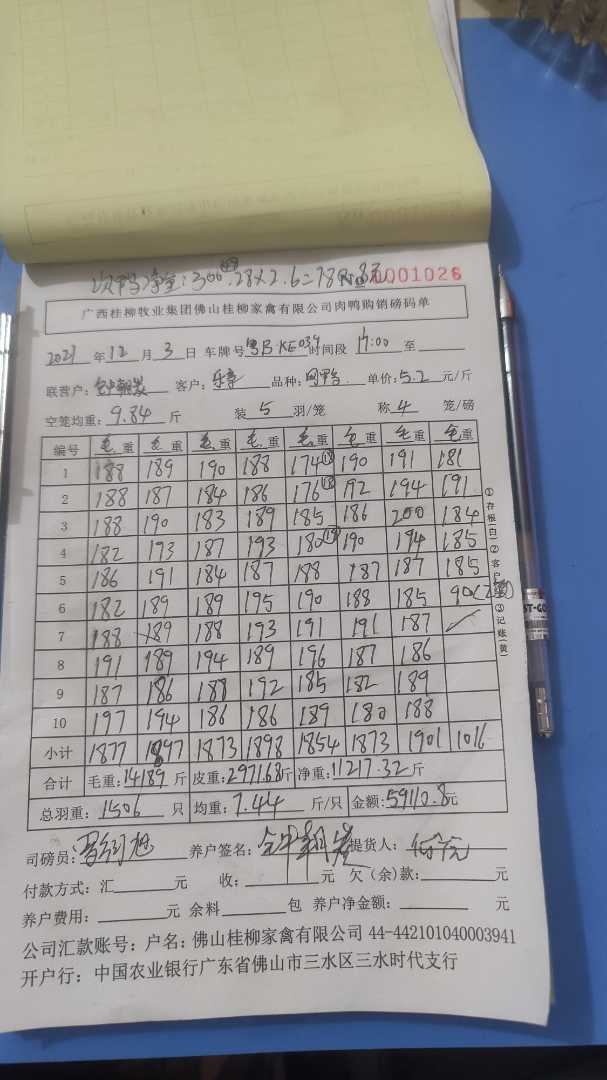 300.28×2.6=780.8元
No 0001026
广西桂柳牧业集团佛山桂柳家禽有限公司肉鸭购销磅码单
2021年12月3日 车牌号粤B·KE039时间段 17:00 至
联营户: 客户: 品种: 单价:5.2元/斤
空笼均重:9.84斤 装5羽/笼 称4笼/磅
编号 毛重 毛重 毛重 毛重 毛重 毛重 毛重 毛重
1 188 189 190 188 174 190 191 181
2 188 187 184 186 176 192 194 191
3 188 190 183 189 185 186 200 184
4 182 193 187 193 180 190 194 185
5 186 191 184 187 188 187 187 185
6 182 189 189 195 190 188 185 90
7 188 189 188 193 191 191 187
8 191 189 194 189 196 187 186
9 187 186 188 192 185 182 189
10 197 194 186 186 189 180 188
小计 1877 1897 1873 1898 1854 1873 1901 1016
合计 毛重:14189斤 皮重:2971.68斤 净重:11217.32斤
总羽重:1506只 均重:7.44斤/只 金额:59110.8元
司磅员: 养户签名: 提货人:
付款方式:汇 元 收: 元 欠(余)款: 元
养户费用: 元 余料 包 养户净金额: 元
公司汇款账号:户名:佛山桂柳家禽有限公司 44-442101040003941
开户行:中国农业银行广东省佛山市三水区三水时代支行
①存根(白)②客户 ③记账(黄)